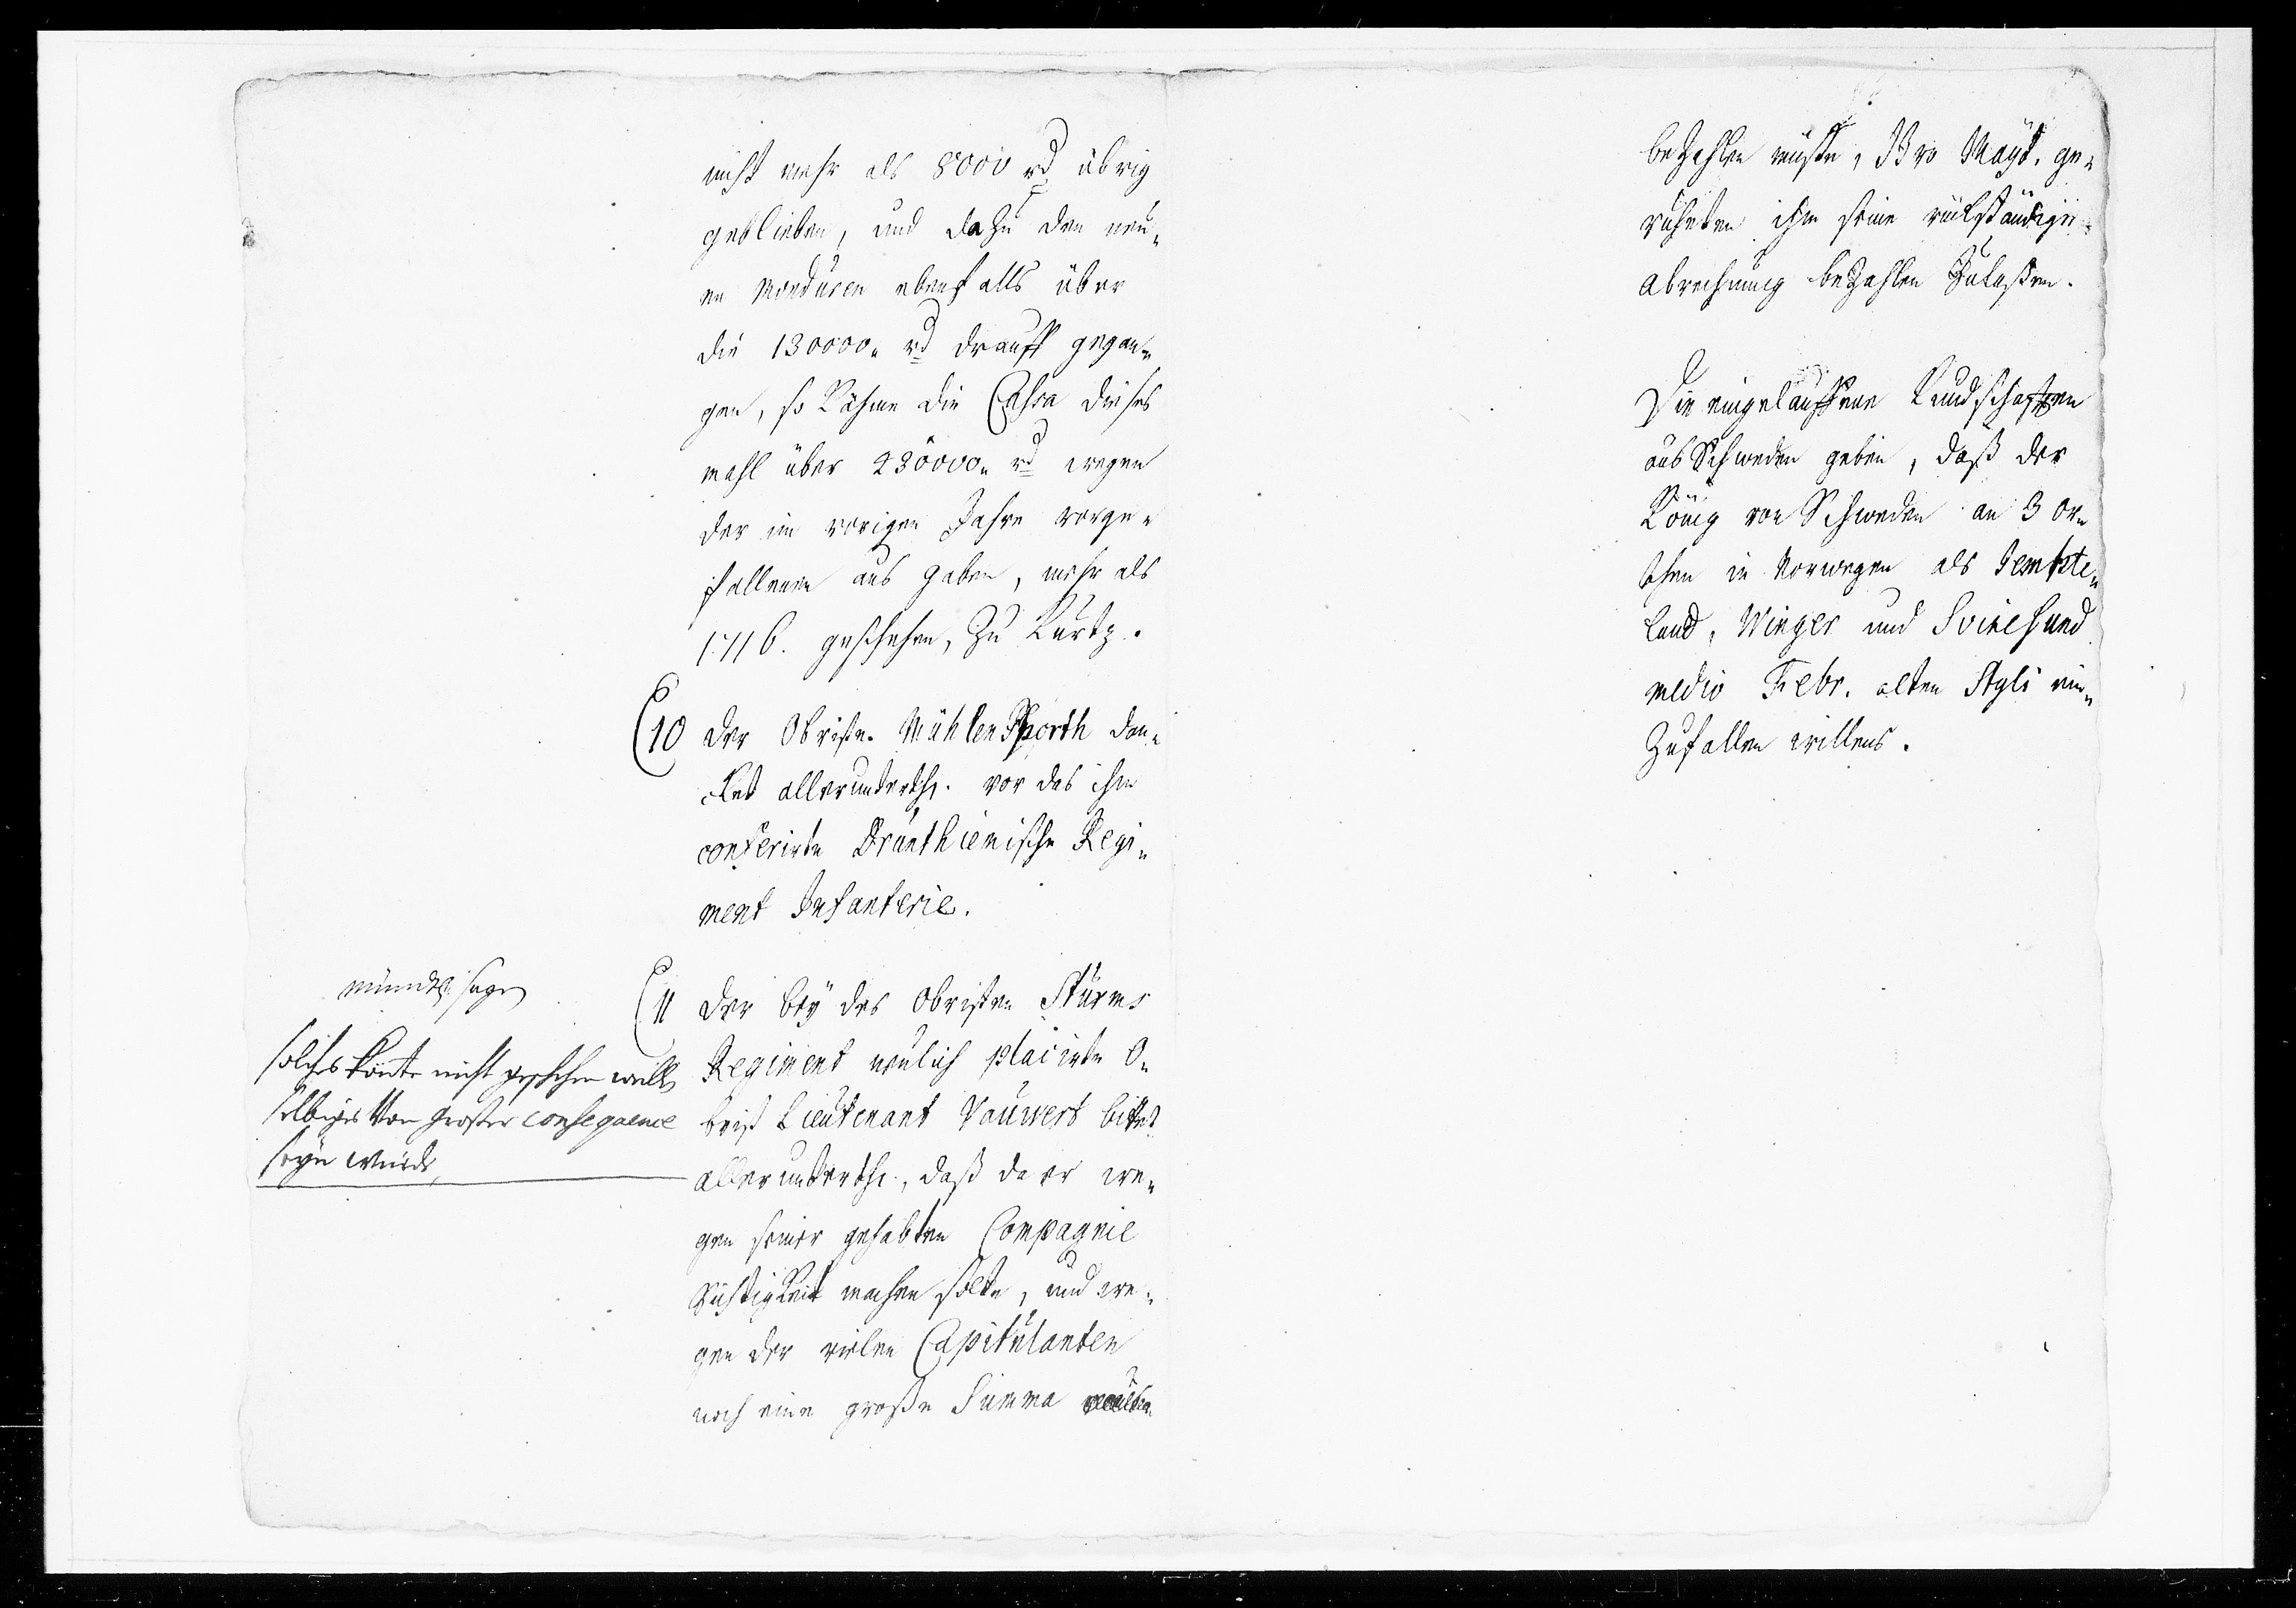 nicht mehr als 8000 rd übrig
geblieben, und dazu den neu-
en Monduren ebenfalls über
die 130000„ rd drauff gegan-
gen, so kähme die Cassa dieses
mahl über 230000„ rd wegen
der im vorigen Jahre vorge-
fallenen ausgaben, mehr als
1716. geschehen, zu kurtz.
10 Der Obriste Mühlenphorth dan-
cket allerunterth. vor das ihm
conferirte Drunthiemische Regi-
ment Infanterie.
mündtl. sagen
solches könte nicht geschehen weill
selbiges von großer consequence
seyn würde,
11 Der bey des Obristen Sturms
Regiment neulich placirte O-
brist Lieutenant Vauwert bittet
allerunterth., daß da er we-
gen seiner gehabten Compagnie
Richtigkeit machen solte, und we-
gen der vielen Capitulanten
noch eine große Summa
bezahlen müste, Ihro Mayt. ge-
ruheten ihm seine rückständige
abrechnung bezahlen zulaßen.
Die eingelauffene Kundschafften
aus Schweden geben, daß der
König von Schweden an 3 Or-
then in Norwegen als Jempte-
land, Winger und Svinesund
medio Febr. alten Styli ein-
zufallen willens.